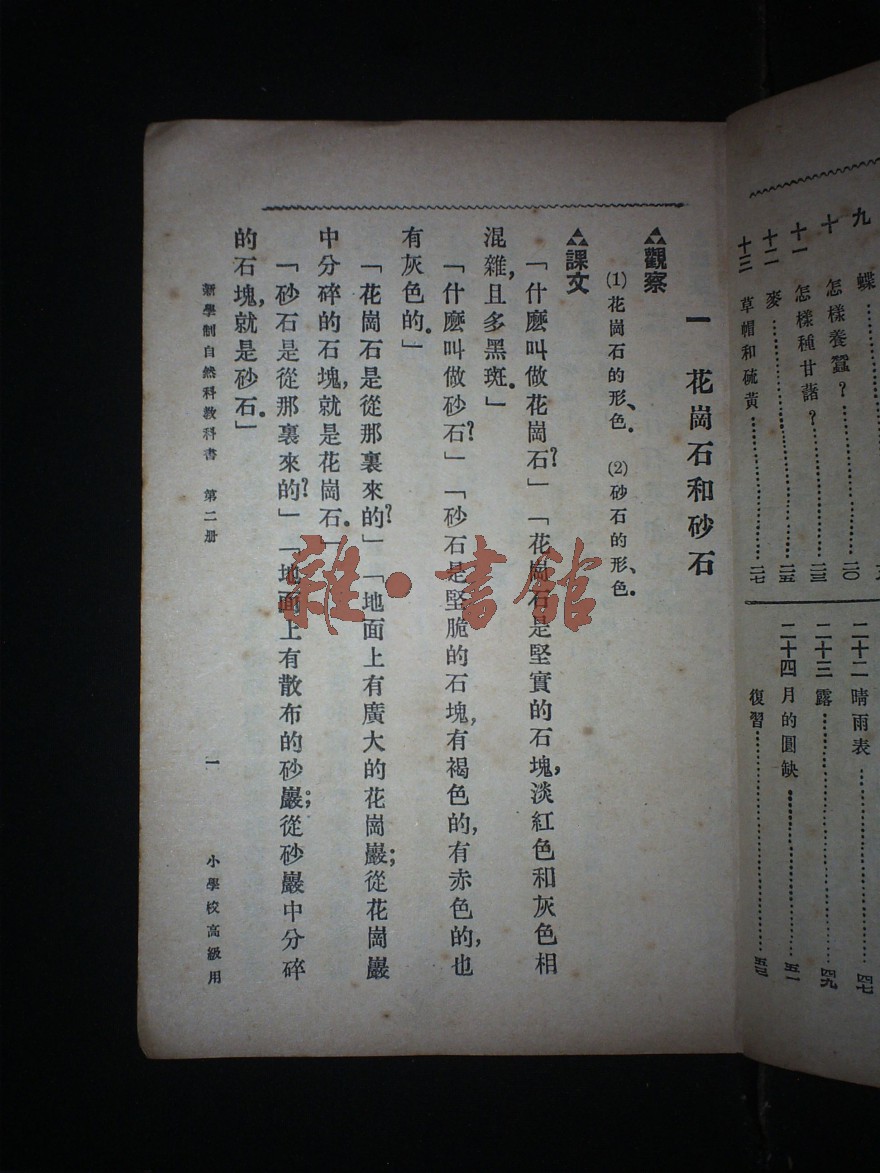 九 蝶
十 怎樣養蠶?……二〇
十一 怎樣種甘藷?……二三
十二 麥……二五
十三 草帽和硫黃……二七
二十二 晴雨表……四七
二十三 露……四九
二十四 月的圓缺……五一
復習……五三
一 花崗石和砂石
觀察
(1)花崗石的形、色。 (2)砂石的形、色。
課文
「什麽叫做花崗石?」「花崗石是堅實的石塊,淡紅色和灰色相
混雜,且多黑斑。」
「什麽叫做砂石?」「砂石是堅脆的石塊,有褐色的,有赤色的,也
有灰色的。」
「花崗石是從那裏來的?」「地面上有廣大的花崗巖;從花崗巖
中分碎的石塊,就是花崗石。」
「砂石是從那裏來的?」「地面上有散布的砂巖;從砂巖中分碎
的石塊,就是砂石。」
新學制自然科教科書 第二册 一 小學校高級用
雜·書館